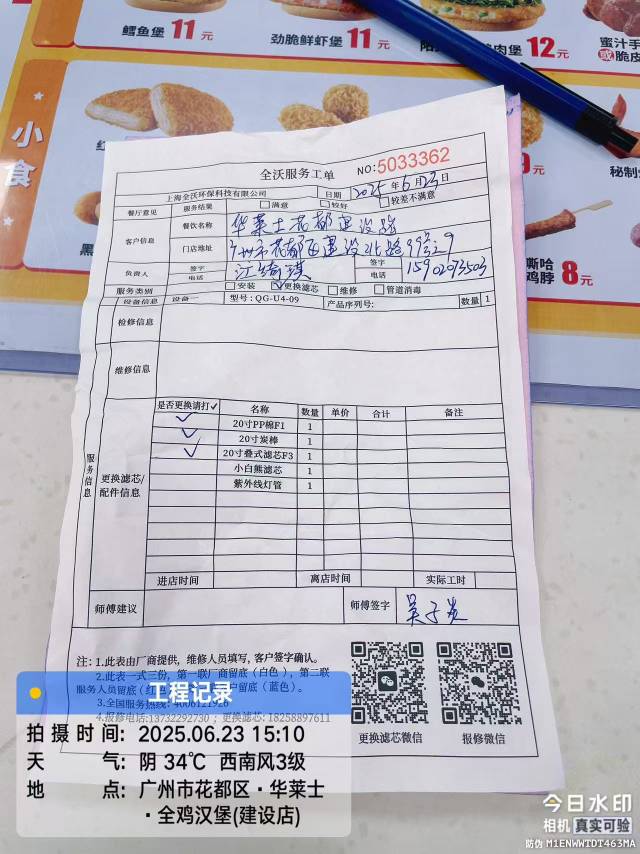 鳕鱼堡 11元
劲脆鲜虾堡 11元
肉堡 12元
蜜汁手
或 脆皮
小食
红
黑
9元
秘制
嘶哈
鸡脖 8元
全沃服务工单 NO:5033362
上海全沃环保科技有限公司 日期 2025年6月23日
餐厅意见 服务结果 满意 较好 较差不满意
客户信息 餐饮名称 华莱士花都建设路
门店地址 广州市花都区建设北路99号之9
负责人 签字 电话 签字 电话 15902073503
服务类别 安装 ✓更换滤芯 维修 管道消毒
设备信息 设备一 型号:QG-U4-09 产品序列号: 数量 1
检修信息
维修信息
服务信息
更换滤芯/配件信息
是否更换请打✓ 名称 数量 单价 合计 备注
✓ 20寸PP棉F1 1
✓ 20寸炭棒 1
✓ 20寸叠式滤芯F3 1
小白熊滤芯 1
紫外线灯管 1
进店时间 离店时间 实际工时
师傅建议 师傅签字
注: 1.此表由厂商提供,维修人员填写,客户签字确认。
2.此表一式三份,第一联厂商留底(白色),第二联
服务人员留底(红 户留底(蓝色)。
3.全国服务热线:4006121926
4.报修电话:13732292730 ; 更换滤芯:18258897611
更换滤芯微信 报修微信
工程记录
拍摄时间: 2025.06.23 15:10
天气: 阴 34℃ 西南风3级
地点: 广州市花都区·华莱士
·全鸡汉堡(建设店)
今日水印
相机 真实可验
防伪 M1ENWWTDT463MA